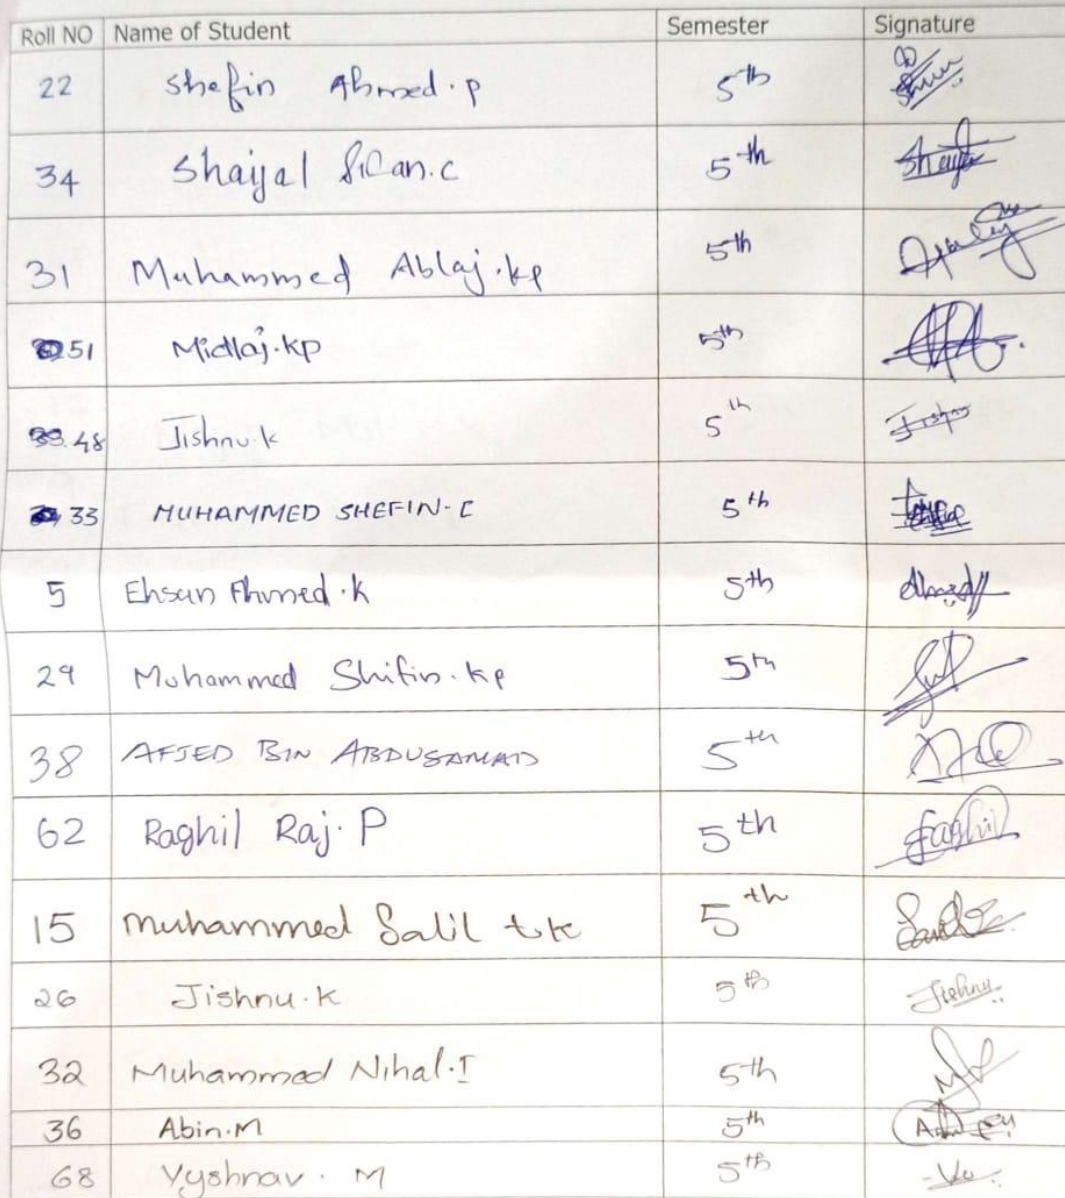 Roll NO Name of Student Semester Signature
22 Shefin Ahmed.P 5th
34 Shaijal 5th
31 Muhammed Ablaj.kp 5th
51 Midlaj.kp 5th
48 Jishnu.k 5th Jishnu
33 MUHAMMED SHEFIN.C 5th
5 Ehsan Ahmed.K 5th Ahmed
29 Mohammed Shifin.kp 5th
38 AFJED BIN ABDUSAMAD 5th
62 Raghil Raj.P 5th Raghil
15 Muhammed Salil t.k 5th
26 Jishnu.K 5th Jishnu
32 Muhammed Nihal.I 5th
36 Abin.M 5th
68 Vyshnav.M 5th